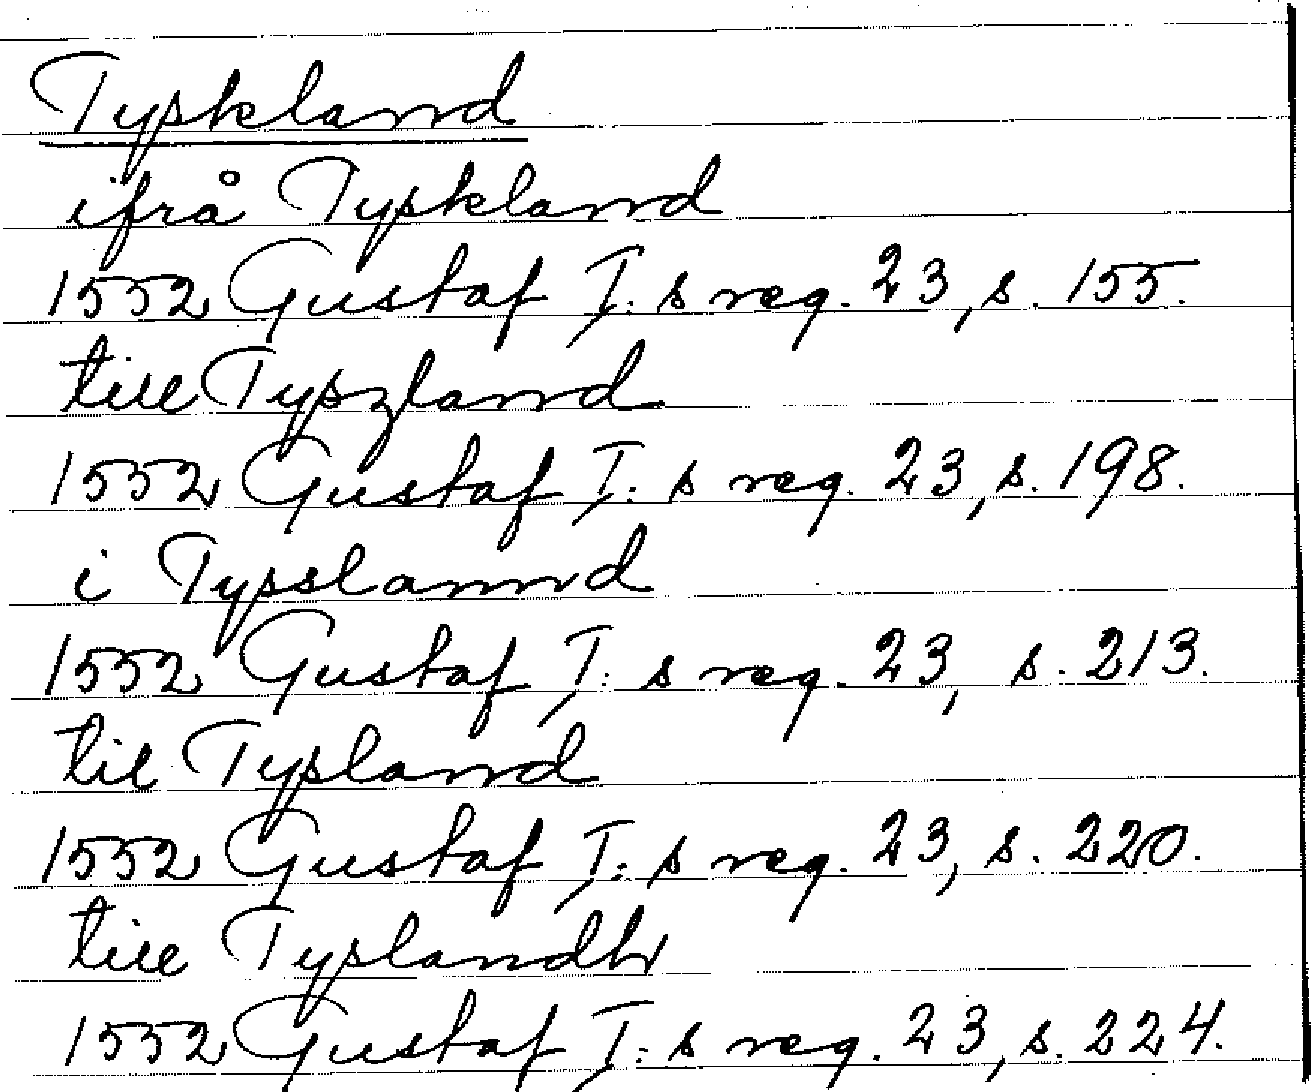 Tyskland
ifrå Tyskland
1552 Gustaf I: s reg. 23, s. 155.
till Tyszland
1552 Gustaf I: s reg. 23, s. 198.
i Tysslannd
1552 Gustaf I: s reg. 23, s. 213.
til Tysland
1552 Gustaf I: s reg. 23, s. 220.
till Tyslandh
1552 Gustaf I: s reg. 23, s. 224.